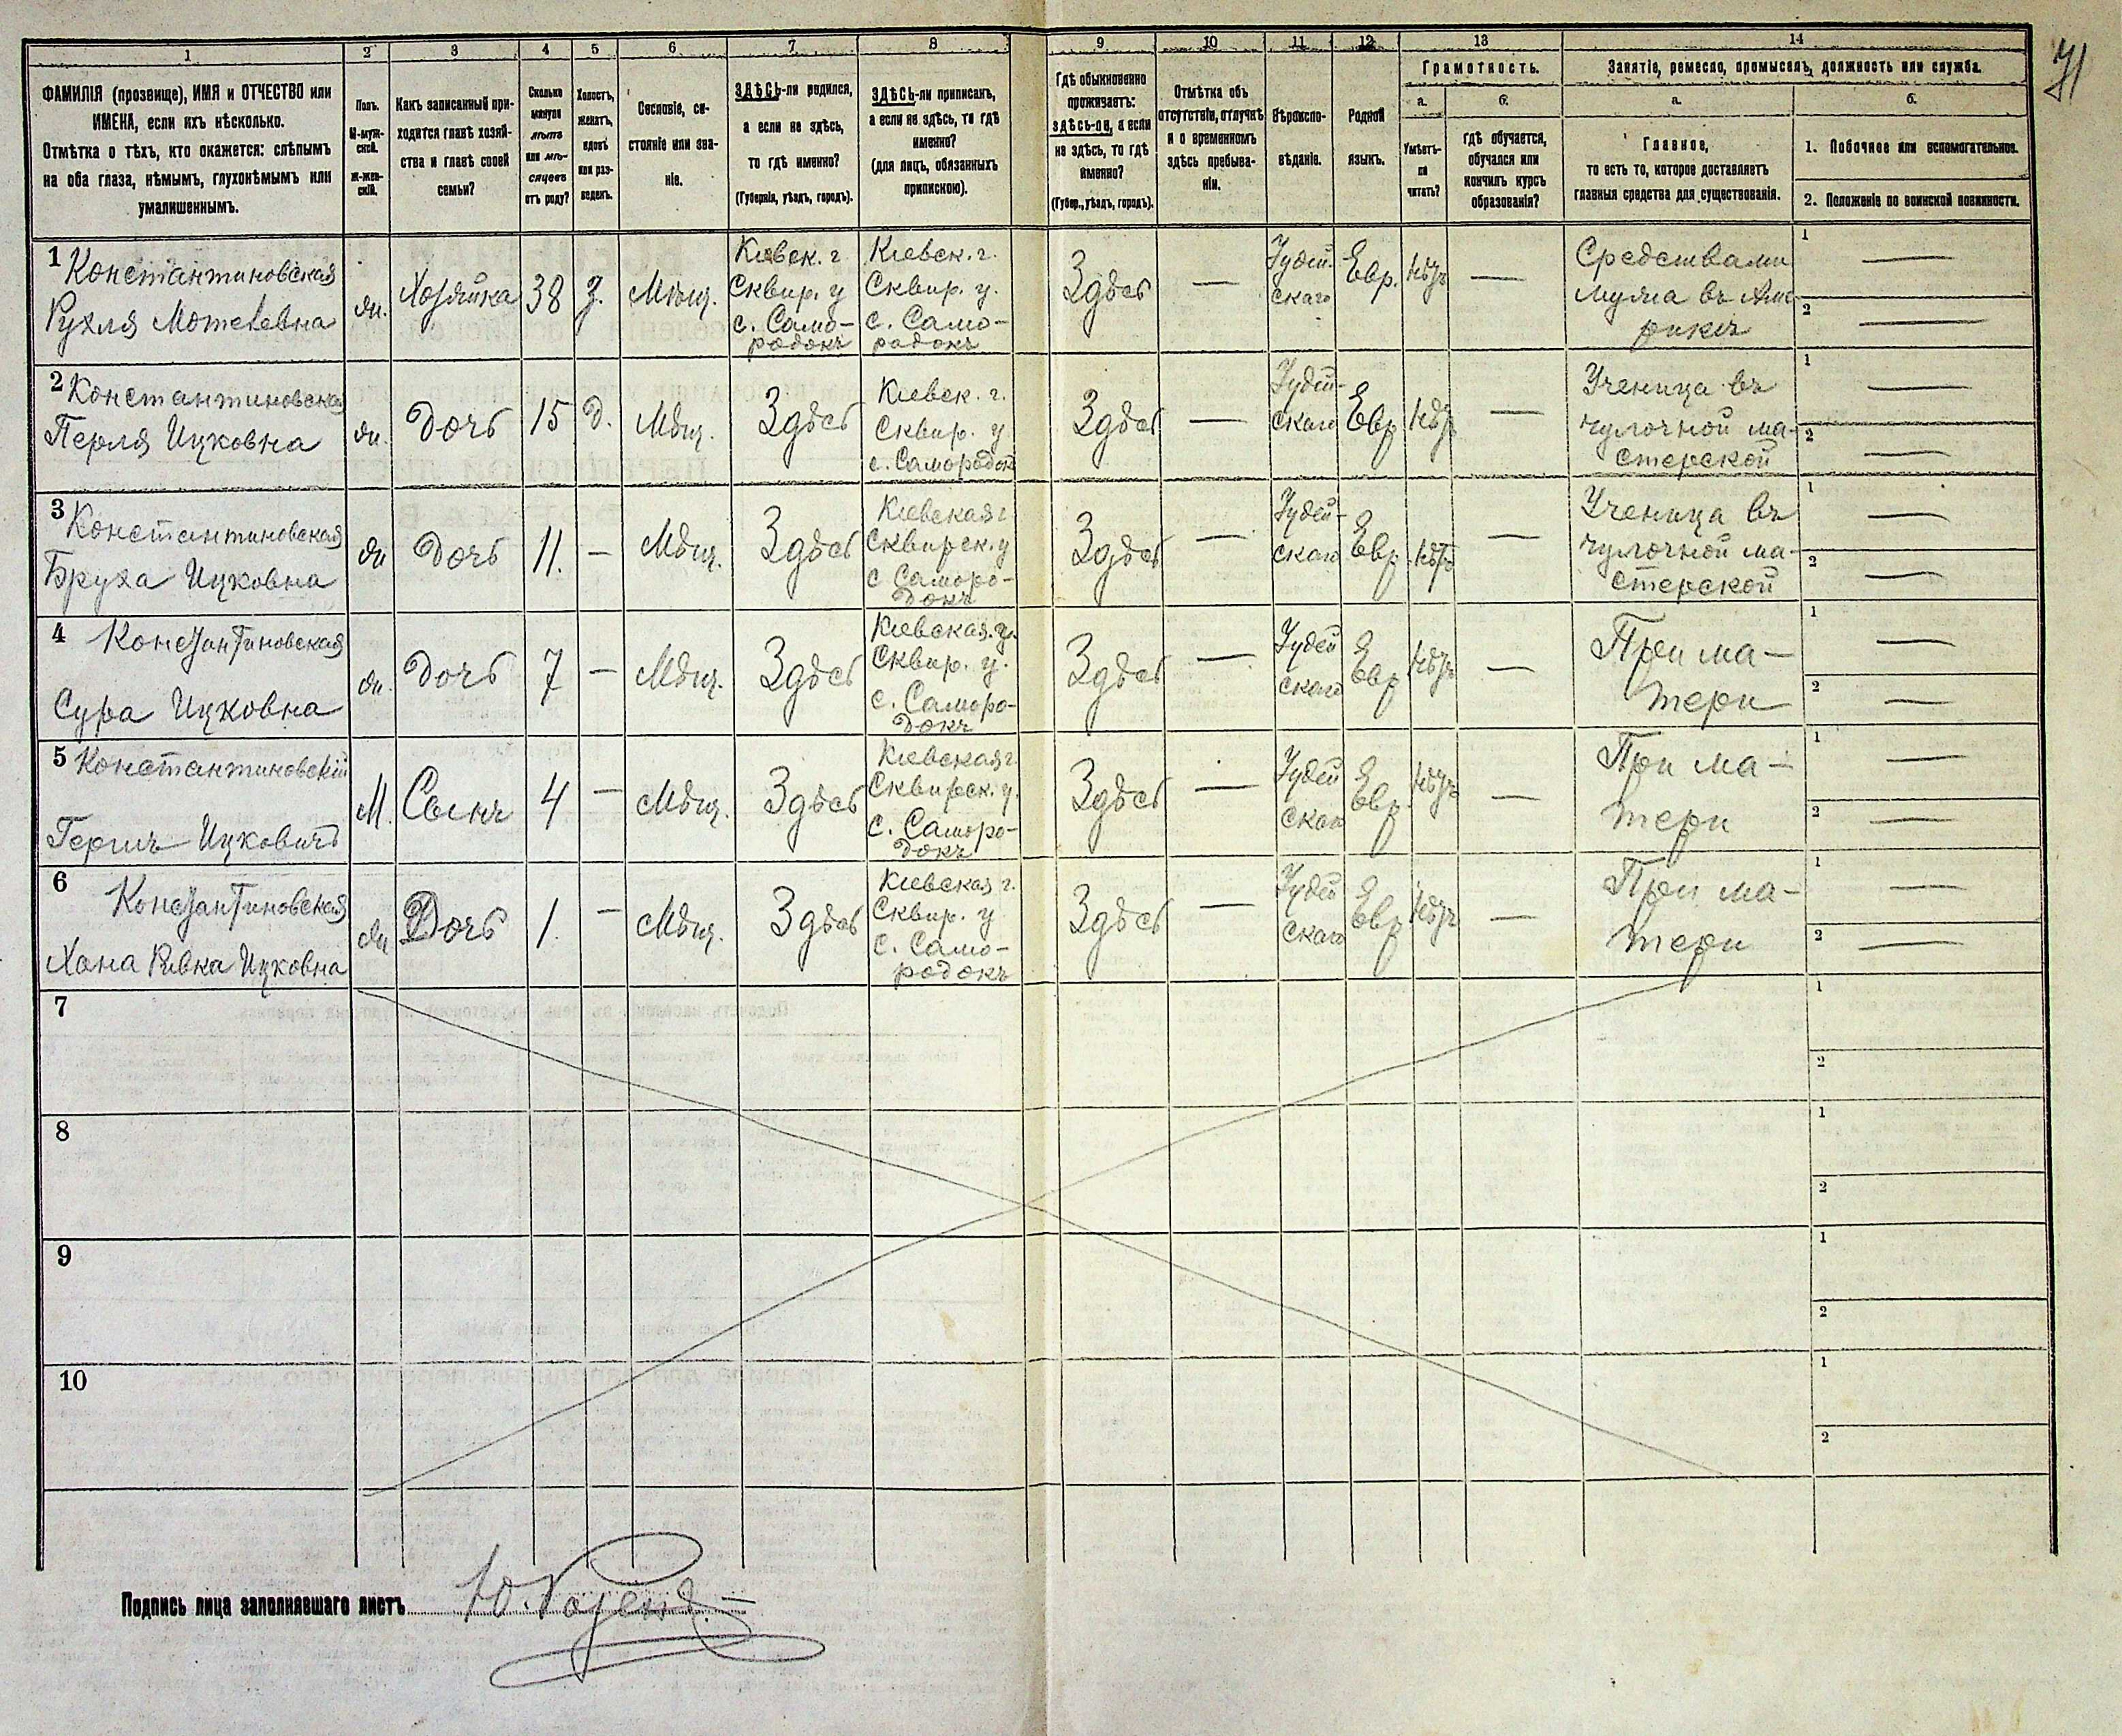 71
1
2
3
4
5
6
7
8
9
10
11
12
13
14
ФАМИЛІЯ (прозвище), ИМЯ и ОТЧЕСТВО или
ИМЕНА, если ихъ нѣсколько.
Отмѣтка о тѣхъ, кто окажется: слѣпымъ
на оба глаза, нѣмымъ, глухонѣмымъ или
умалишеннымъ.
Полъ.
М-муж-
ской.
Ж-жен-
скій.
Какъ записанный при-
ходится главѣ хозяй-
ства и главѣ своей
семьи?
Сколько
минуло
лѣтъ
или мѣ-
сяцевъ
отъ роду?
Холостъ,
женатъ,
вдовъ
или раз-
веденъ.
Сословіе, со-
стояніе или зва-
ніе.
ЗДѢСЬ-ли родился,
а если не здѣсь,
то гдѣ именно?
(Губернія, уѣздъ, городъ).
ЗДѢСЬ-ли приписанъ,
а если не здѣсь, то гдѣ
именно?
(для лицъ, обязанныхъ
припискою).
Гдѣ обыкновенно
проживаетъ:
здѣсь-ли, а если
не здѣсь, то гдѣ
именно?
(Губер., уѣздъ, городъ).
Отмѣтка объ
отсутствіи, отлучкѣ
и о временномъ
здѣсь пребыва-
ніи.
Вѣроиспо-
вѣданіе.
Родной
языкъ.
Грамотность.
а.
Умѣетъ-
ли
читать?
б.
гдѣ обучается,
обучался или
кончилъ курсъ
образованія?
Занятіе, ремесло, промыселъ, должность или служба.
а.
Главное,
то есть то, которое доставляетъ
главныя средства для существованія.
б.
1. Побочное или вспомогательное.
2. Положеніе по воинской повинности.
1 Константиновская
Рухля Мотелевна
жн.
Хозяйка
38
З.
Мѣщ.
Кіевск. г.
Сквир. у
с. Само-
родокъ
Кіевск. г.
Сквир. у.
с. Само-
родокъ
Здѣсь
—
Іудей-
скаго
Евр.
Нѣтъ
—
Средствами
мужа въ Аме
рикѣ
1 —
2 —
2 Константиновская
Перля Ицковна
жн.
Дочь
15
Д.
Мѣщ.
Здѣсь
Кіевск. г.
Сквир. у
с. Самородок
Здѣсь
—
Іудей-
скаго
Евр
Нѣтъ
—
Ученица въ
чулочной ма-
стерской
1 —
2 —
3 Константиновская
Бруха Ицковна
жн
Дочь
11.
—
Мѣщ.
Здѣсь
Кіевская г
Сквирск. у
с Саморо-
докъ
Здѣсь
—
Іудей-
скаго
Евр.
Нѣтъ
—
Ученица въ
чулочной ма-
стерской
1 —
2 —
4 Константиновская
Сура Ицковна
жн.
Дочь
7
—
Мѣщ.
Здѣсь
Кіевская. г.
Сквир. у.
с. Саморо-
докъ
Здѣсь
—
Іудей
скаго
Евр
Нѣтъ
—
При ма-
тери
1 —
2 —
5 Константиновскій
Гершъ Ицковичъ
М.
Сынъ
4
—
Мѣщ.
Здѣсь
Кіевская г.
Сквирск. у.
с. Саморо-
докъ
Здѣсь
—
Іудей
скаго
Евр.
Нѣтъ
—
При ма-
тери
1 —
2 —
6 Константиновская
Хана Ривка Ицковна
жн
Дочь
1.
—
Мѣщ.
Здѣсь
Кіевская г.
Сквир. у
с. Само-
родокъ
Здѣсь
—
Іудей
скаго
Евр
Нѣтъ
—
При ма-
тери
1 —
2 —
7
1
2
8
1
2
9
1
2
10
1
2
Подпись лица заполнявшаго листъ